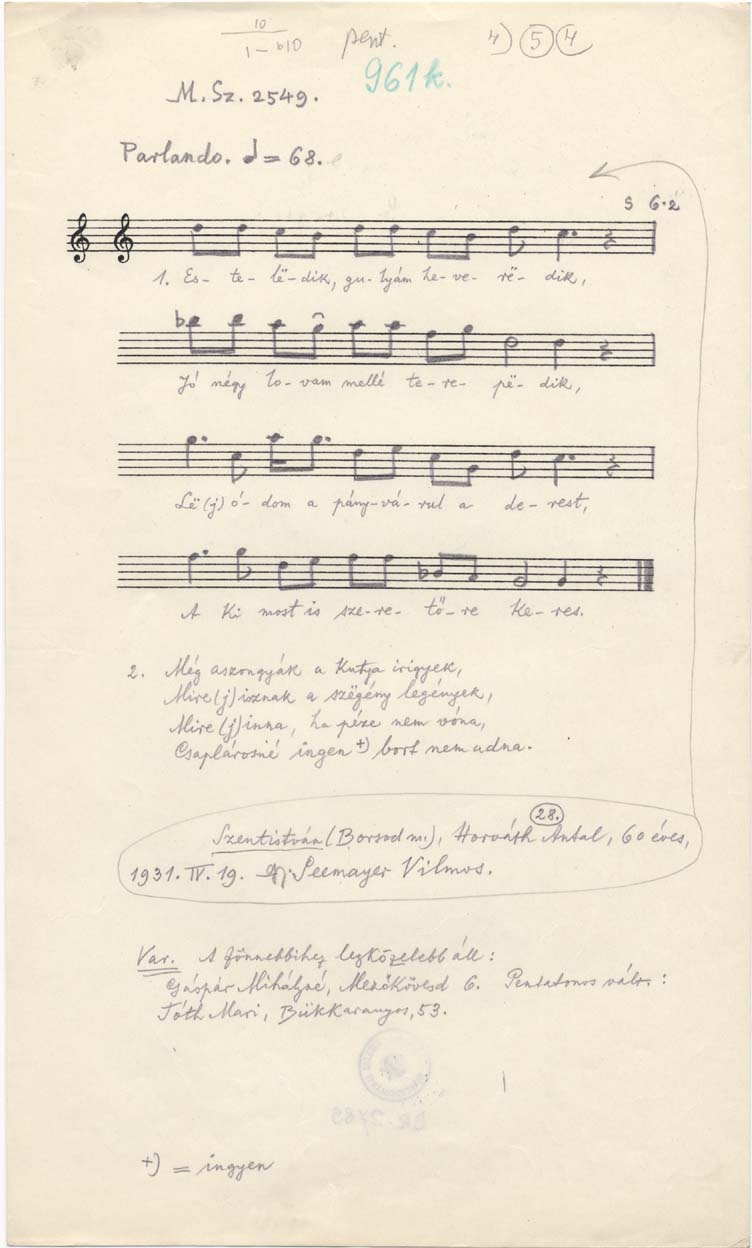 10
1 – b10
pent.
4) 5 4
961k.
M. Sz. 2549.
Parlando. ♩ = 68.
s 6·2
1. Es- te- lë-dik, gu-lyám he-ve- rë- dik,
Jó négy lo-vam mellé te-re- pë- dik,
Lë(j) ó- dom a pány-vá-rul a de-rest,
A ki most is sze-re- tő-re ke-res.
2. Még aszongyák a kutya irigyek,
Mire (j) isznak a szëgény legények,
Mire (j) inna, ha péze nem vóna,
Csaplárosné ingen +) bort nem adna.
28.
Szentistván (Borsod m.), Horváth Antal, 60 éves,
1931. IV. 19. Gy. Seemayer Vilmos.
Var. A fönnebbihez legközelebb áll:
Gáspár Mihályné, Mezőkövesd 6. Pentatonos vált.:
Tóth Mari, Bükkaranyos, 53.
+) = ingyen